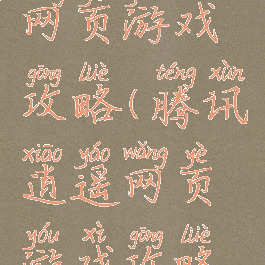 网页游戏
gōng lüè téng xùn
攻略(腾讯
xiāo yáo wǎng yè
逍遥网页
yóu xì gōng lüè
游戏攻略